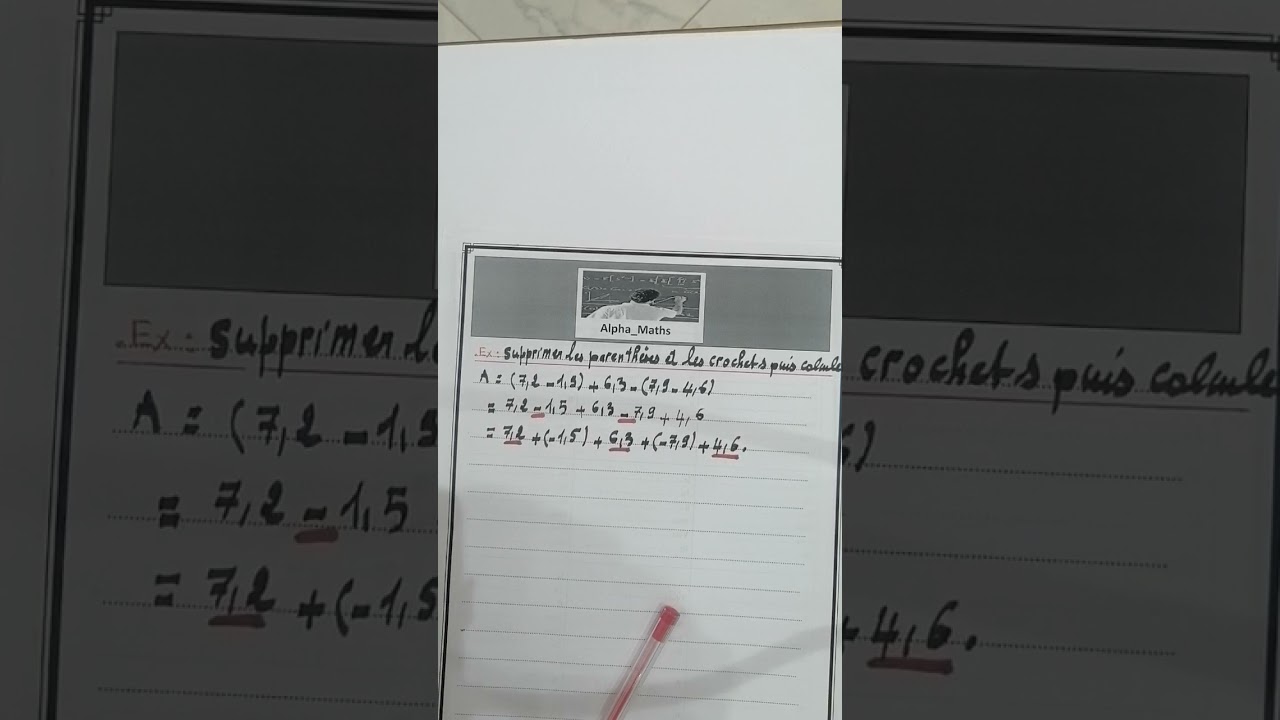 Alpha_Maths
Ex: Supprimer les parenthèses et les crochets puis calcule
A = (7,2 - 1,5) + 6,3 - (7,9 - 4,6)
= 7,2 - 1,5 + 6,3 - 7,9 + 4,6
= 7,2 + (-1,5) + 6,3 + (-7,9) + 4,6.